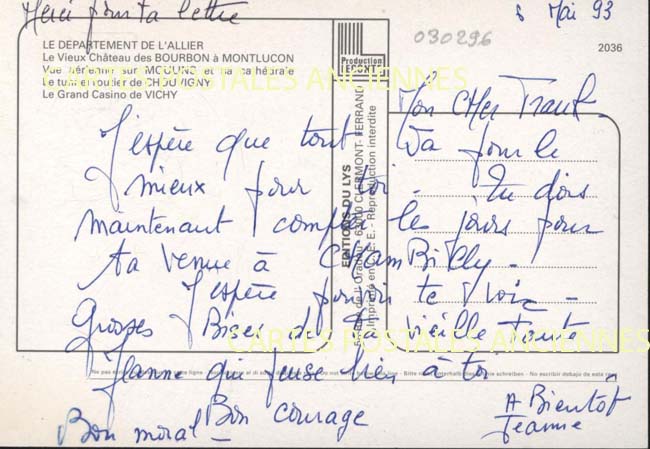 Merci pour ta lettre
8 Mai 93
030296
2036
LE DEPARTEMENT DE L'ALLIER
Le Vieux Château des BOURBON à MONTLUCON
Vue aérienne sur MOULINS et sa cathédrale
Le tunnel routier de CHOUVIGNY
Le Grand Casino de VICHY
Production
LECONTE
EDITIONS DU LYS
CLERMONT-FERRAND
Imprimé en C.E.E. - Reproduction interdite
CARTES POSTALES ANCIENNES
Mon cher Franck
J'espère que tout va pour le
mieux pour toi - Tu dois
maintenant compter les jours pour
ta venue à
J'espère pouvoir te voir -
Grosses Bises de ta vieille tante
Jeanne qui pense bien à toi
CARTES POSTALES ANCIENNES
Bon moral - Bon courage
A Bientôt
Jeanne